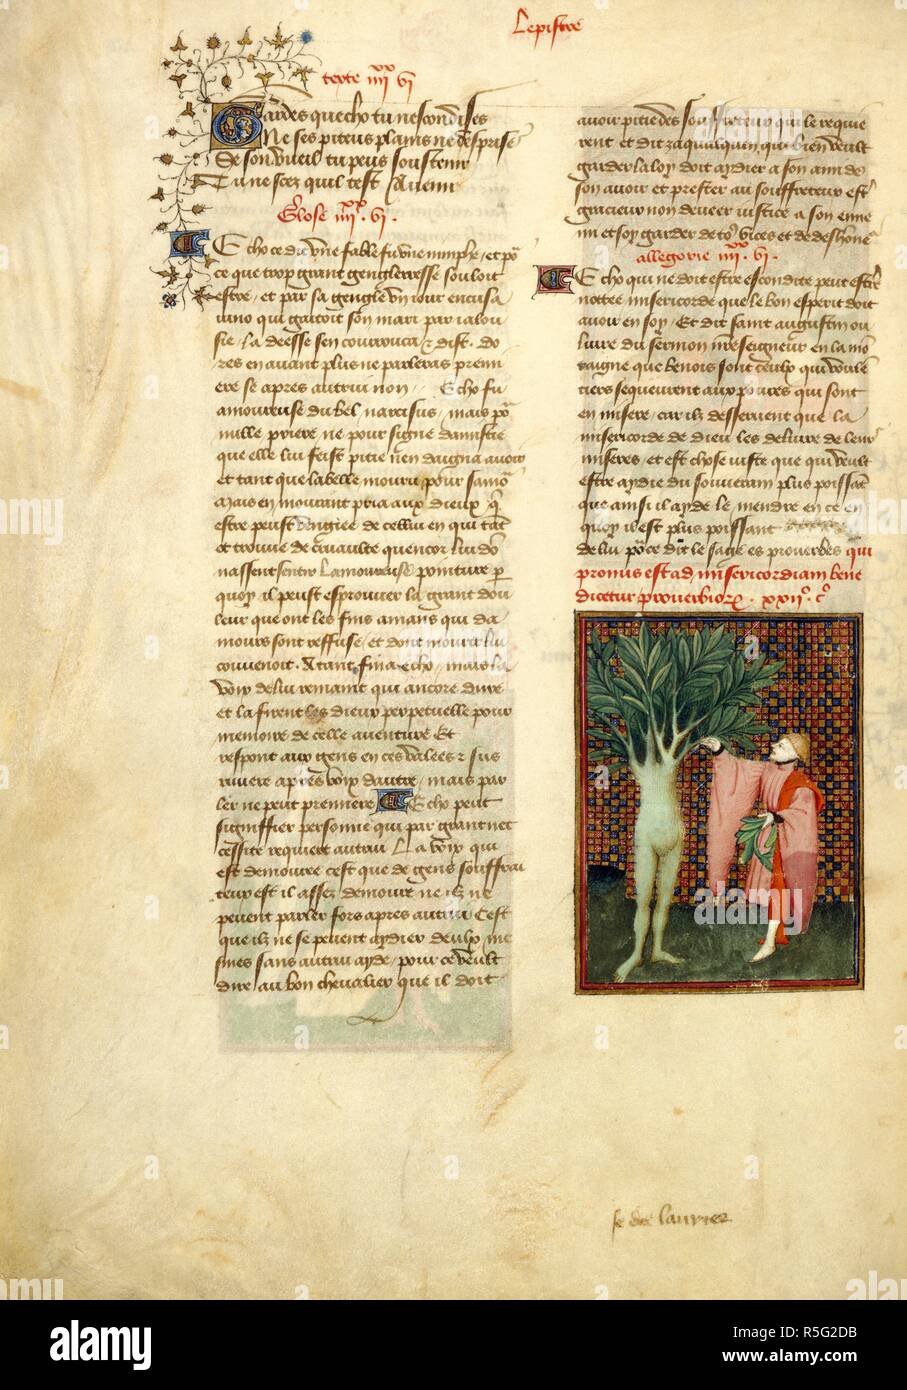 Lepistre
texte iiii xx vi
Gardes que echo tu nescondises
Ne ses piteus plains ne desprises
Se son vueil tu peus soustenir
Tu ne scez quil test a venir
Glose iiii xx vi.
Echo ce dit une fable fu une nimphe, et po
ce que trop grant gengleresse souloit
estre, et par sa gengle un iour encusa
iuno qui gaitoit son mari par ialou
sie, la deesse sen courrouca et dist. do
res en avant plus ne parleras premi
ere se apres autrui non. Echo fu
amoureuse du bel narcisus, mais po
mille priere, ne pour signe damistie
que elle lui feist pitie nen daigna avoir
et tant que la belle mouru pour samo
Mais en mourant pria aux dieux q
estre peust vengiee de cellui en qui tant
ot trouve de cruaulte quencor lui do
nassent sentir lamoureuse pointure p
quoy il peust esprouver la grant dou
leur que ont les fins amans qui da
mours sont reffuse, et dont mourir lui
couvenoit. A tant fina echo, mais la
voix de lui remaint qui encore dure
et la firent les dieux perpetuelle pour
memoire de celle aventure Et
respont aux gens en ces valees et sus
riviere apres voix dautre, mais par
ler ne peut premiere Echo peut
signiffier personne qui par grant nec
cessite requiert autrui La voix qui
est demouree cest que de gens souffrai
teux est il assez demoure ne ilz ne
peuent parler fors apres autrui Cest
que ilz ne se peuent aydier deulx me
smes sans autrui ayde, pour ce veult
dire au bon chevalier que il doit
avoir pitie des souffreteux qui le requie
rent et dit zaqualquin, qui bien veult
garder la loy doit aydier a son ami de
son avoir et prester au souffreteux estre
gracieux non deveer iustice a son enne
mi et soy garder de to vices et de deshonne
allegorie iiii xx vi.
Echo qui ne doit estre escondite peut estre
nottee misericorde que le bon esperit doit
avoir en soy, Et dit saint augustin ou
livre du sermon nostre seigneur en la mo
taigne que benois sont ceulx qui voulen
tiers sequeurent aux povres qui sont
en misere, car ilz desservent que la
misericorde de dieu les delivre de leurs
miseres, et est chose iuste que qui veult
estre aydie du souverain plus poissant
que ainsi il ayde le mendre en ce en
quoy il est plus poissant
de lui po ce dit le sage es proverbes qui
pronus est ad misericordiam bene
dicetur proverbiorum. xxiio. co
se de laurier
alamy
alamy
a
a
alamy
Image ID: R5G2DB
www.alamy.com